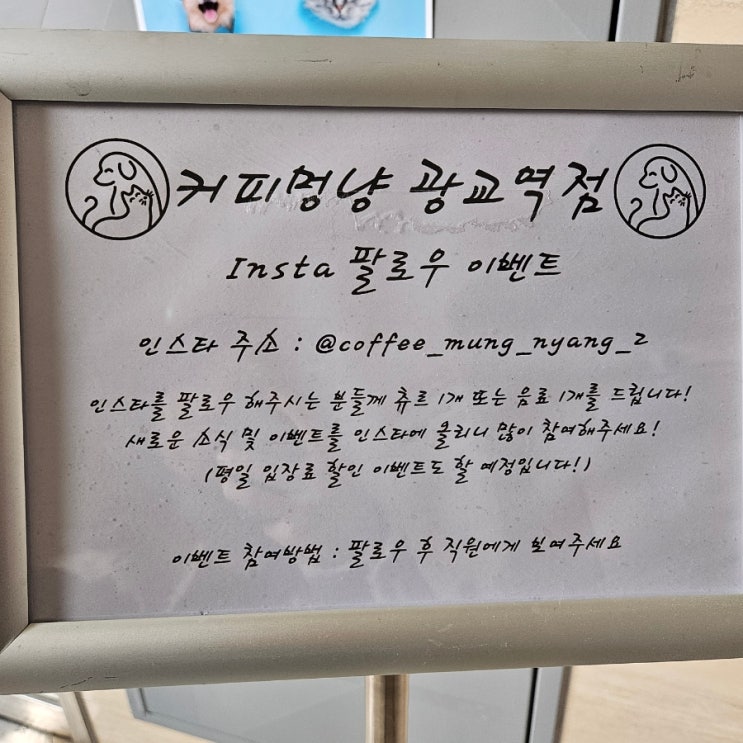 커피멍냥 광교역점
Insta 팔로우 이벤트
인스타 주소 : @coffee_mung_nyang_2
인스타를 팔로우 해주시는 분들께 츄르 1개 또는 음료 1개를 드립니다!
새로운 소식 및 이벤트를 인스타에 올리니 많이 참여해주세요!
(평일 입장료 할인 이벤트도 할 예정입니다!)
이벤트 참여방법 : 팔로우 후 직원에게 보여주세요